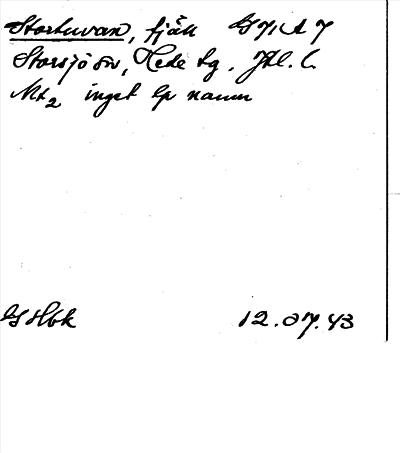 Storhuvan, fjäll G 71 A 7
Storsjö sn, Hede tg. Jtl. l.
Mt2 inget lp namn
GHbk 12.07.43